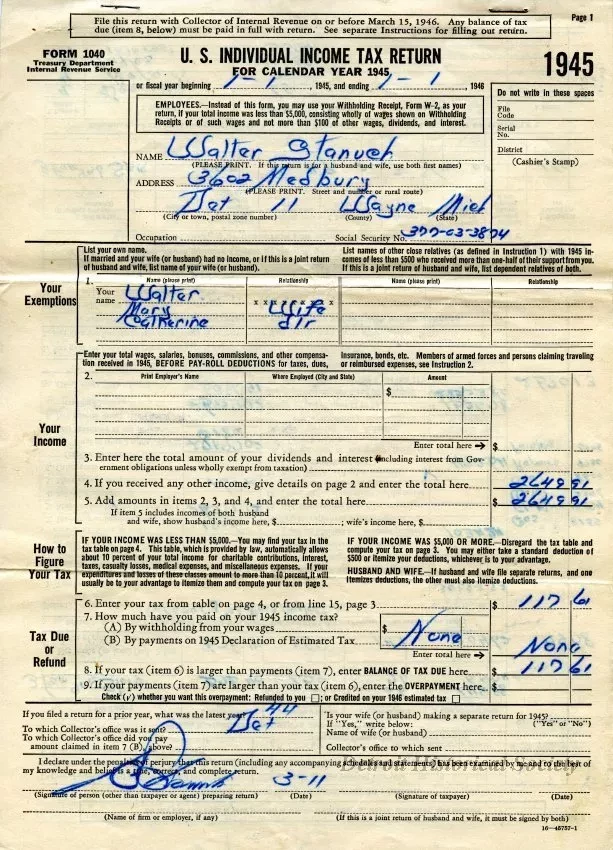 File this return with Collector of Internal Revenue on or before March 15, 1946. Any balance of tax
due (item 8, below) must be paid in full with return. See separate Instructions for filling out return.
Page 1
FORM 1040
Treasury Department
Internal Revenue Service
U. S. INDIVIDUAL INCOME TAX RETURN
FOR CALENDAR YEAR 1945
1945
or fiscal year beginning 1-1, 1945, and ending 1-1, 1946
Do not write in these spaces
EMPLOYEES.—Instead of this form, you may use your Withholding Receipt, Form W-2, as your
return, if your total income was less than $5,000, consisting wholly of wages shown on Withholding
Receipts or of such wages and not more than $100 of other wages, dividends, and interest.
File
Code
Serial
No.
District
(Cashier's Stamp)
NAME Walter Stanuch
(PLEASE PRINT. If this return is for a husband and wife, use both first names)
ADDRESS 3602 Medbury
(PLEASE PRINT. Street and number or rural route)
Det 11 Wayne Mich
(City or town, postal zone number) (County) (State)
Occupation Social Security No. 377-03-3874
Your
Exemptions
List your own name.
If married and your wife (or husband) had no income, or if this is a joint return
of husband and wife, list name of your wife (or husband).
List names of other close relatives (as defined in Instruction 1) with 1945 in-
comes of less than $500 who received more than one-half of their support from you.
If this is a joint return of husband and wife, list dependent relatives of both.
1. Name (please print) Relationship Name (please print) Relationship
Your
name Walter x x x x x x x x
Mary Wife
Catherine
Your
Income
Enter your total wages, salaries, bonuses, commissions, and other compensa-
tion received in 1945, BEFORE PAY-ROLL DEDUCTIONS for taxes, dues,
insurance, bonds, etc. Members of armed forces and persons claiming traveling
or reimbursed expenses, see Instruction 2.
2. Print Employer's Name Where Employed (City and State) Amount
$
Enter total here → $
3. Enter here the total amount of your dividends and interest (including interest from Gov-
ernment obligations unless wholly exempt from taxation)
4. If you received any other income, give details on page 2 and enter the total here 2649 91
5. Add amounts in items 2, 3, and 4, and enter the total here $ 2649 91
If item 5 includes incomes of both husband
and wife, show husband's income here, $ ; wife's income here, $
How to
Figure
Your Tax
IF YOUR INCOME WAS LESS THAN $5,000.—You may find your tax in the
tax table on page 4. This table, which is provided by law, automatically allows
about 10 percent of your total income for charitable contributions, interest,
taxes, casualty losses, medical expenses, and miscellaneous expenses. If your
expenditures and losses of these classes amount to more than 10 percent, it will
usually be to your advantage to itemize them and compute your tax on page 3.
IF YOUR INCOME WAS $5,000 OR MORE.—Disregard the tax table and
compute your tax on page 3. You may either take a standard deduction of
$500 or itemize your deductions, whichever is to your advantage.
HUSBAND AND WIFE.—If husband and wife file separate returns, and one
itemizes deductions, the other must also itemize deductions.
Tax Due
or
Refund
6. Enter your tax from table on page 4, or from line 15, page 3 $ 117 61
7. How much have you paid on your 1945 income tax?
(A) By withholding from your wages $
(B) By payments on 1945 Declaration of Estimated Tax None
Enter total here → None
8. If your tax (item 6) is larger than payments (item 7), enter BALANCE OF TAX DUE here $ 117 61
9. If your payments (item 7) are larger than your tax (item 6), enter the OVERPAYMENT here $
Check (√) whether you want this overpayment: Refunded to you ☐; or Credited on your 1946 estimated tax ☐
If you filed a return for a prior year, what was the latest year? 44
To which Collector's office was it sent? Det
To which Collector's office did you pay
amount claimed in item 7 (B), above?
Is your wife (or husband) making a separate return for 1945?
("Yes" or "No")
If "Yes," write below:
Name of wife (or husband)
Collector's office to which sent
I declare under the penalties of perjury that this return (including any accompanying schedules and statements) has been examined by me and to the best of
my knowledge and belief is a true, correct, and complete return.
Detroit Historical Society
3-11
(Signature of person (other than taxpayer or agent) preparing return) (Date) (Signature of taxpayer) (Date)
(Name of firm or employer, if any) (If this is a joint return of husband and wife, it must be signed by both)
16—45757-1